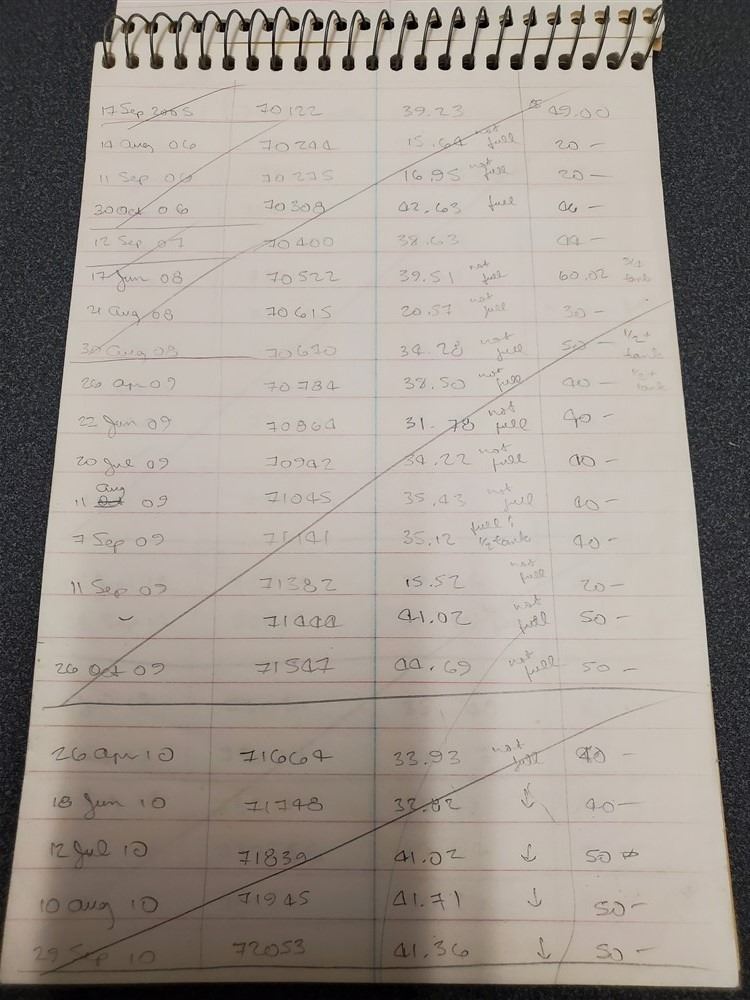 17 Sep 2005 70122 39.23 $ 49.00
14 Aug 06 70244 15.64 not full 20 —
11 Sep 06 70275 16.95 not full 20 —
30 Oct 06 70308 42.63 full 46 —
12 Sep 07 70400 38.63 44 —
17 Jun 08 70522 39.51 not full 60.02 3/4 tank
21 Aug 08 70615 20.57 not full 30 —
30 Aug 08 70670 34.28 not full 50 — 1/2 + tank
26 Apr 09 70784 38.50 not full 40 — 1/2 + tank
22 Jun 09 70864 31.78 not full 40 —
20 Jul 09 70942 34.22 not full 40 —
11 Aug 09 71045 35.43 not full 40 —
7 Sep 09 71141 35.12 full? 1/2 tank 40 —
11 Sep 09 71382 15.52 not full 20 —
~ 71444 41.02 not full 50 —
26 Oct 09 71547 44.69 not full 50 —
26 Apr 10 71664 33.93 not full 40 —
18 Jun 10 71748 32.82 ↓ 40 —
12 Jul 10 71839 41.02 ↓ 50
10 Aug 10 71945 41.71 ↓ 50 —
29 Sep 10 72053 41.36 ↓ 50 —